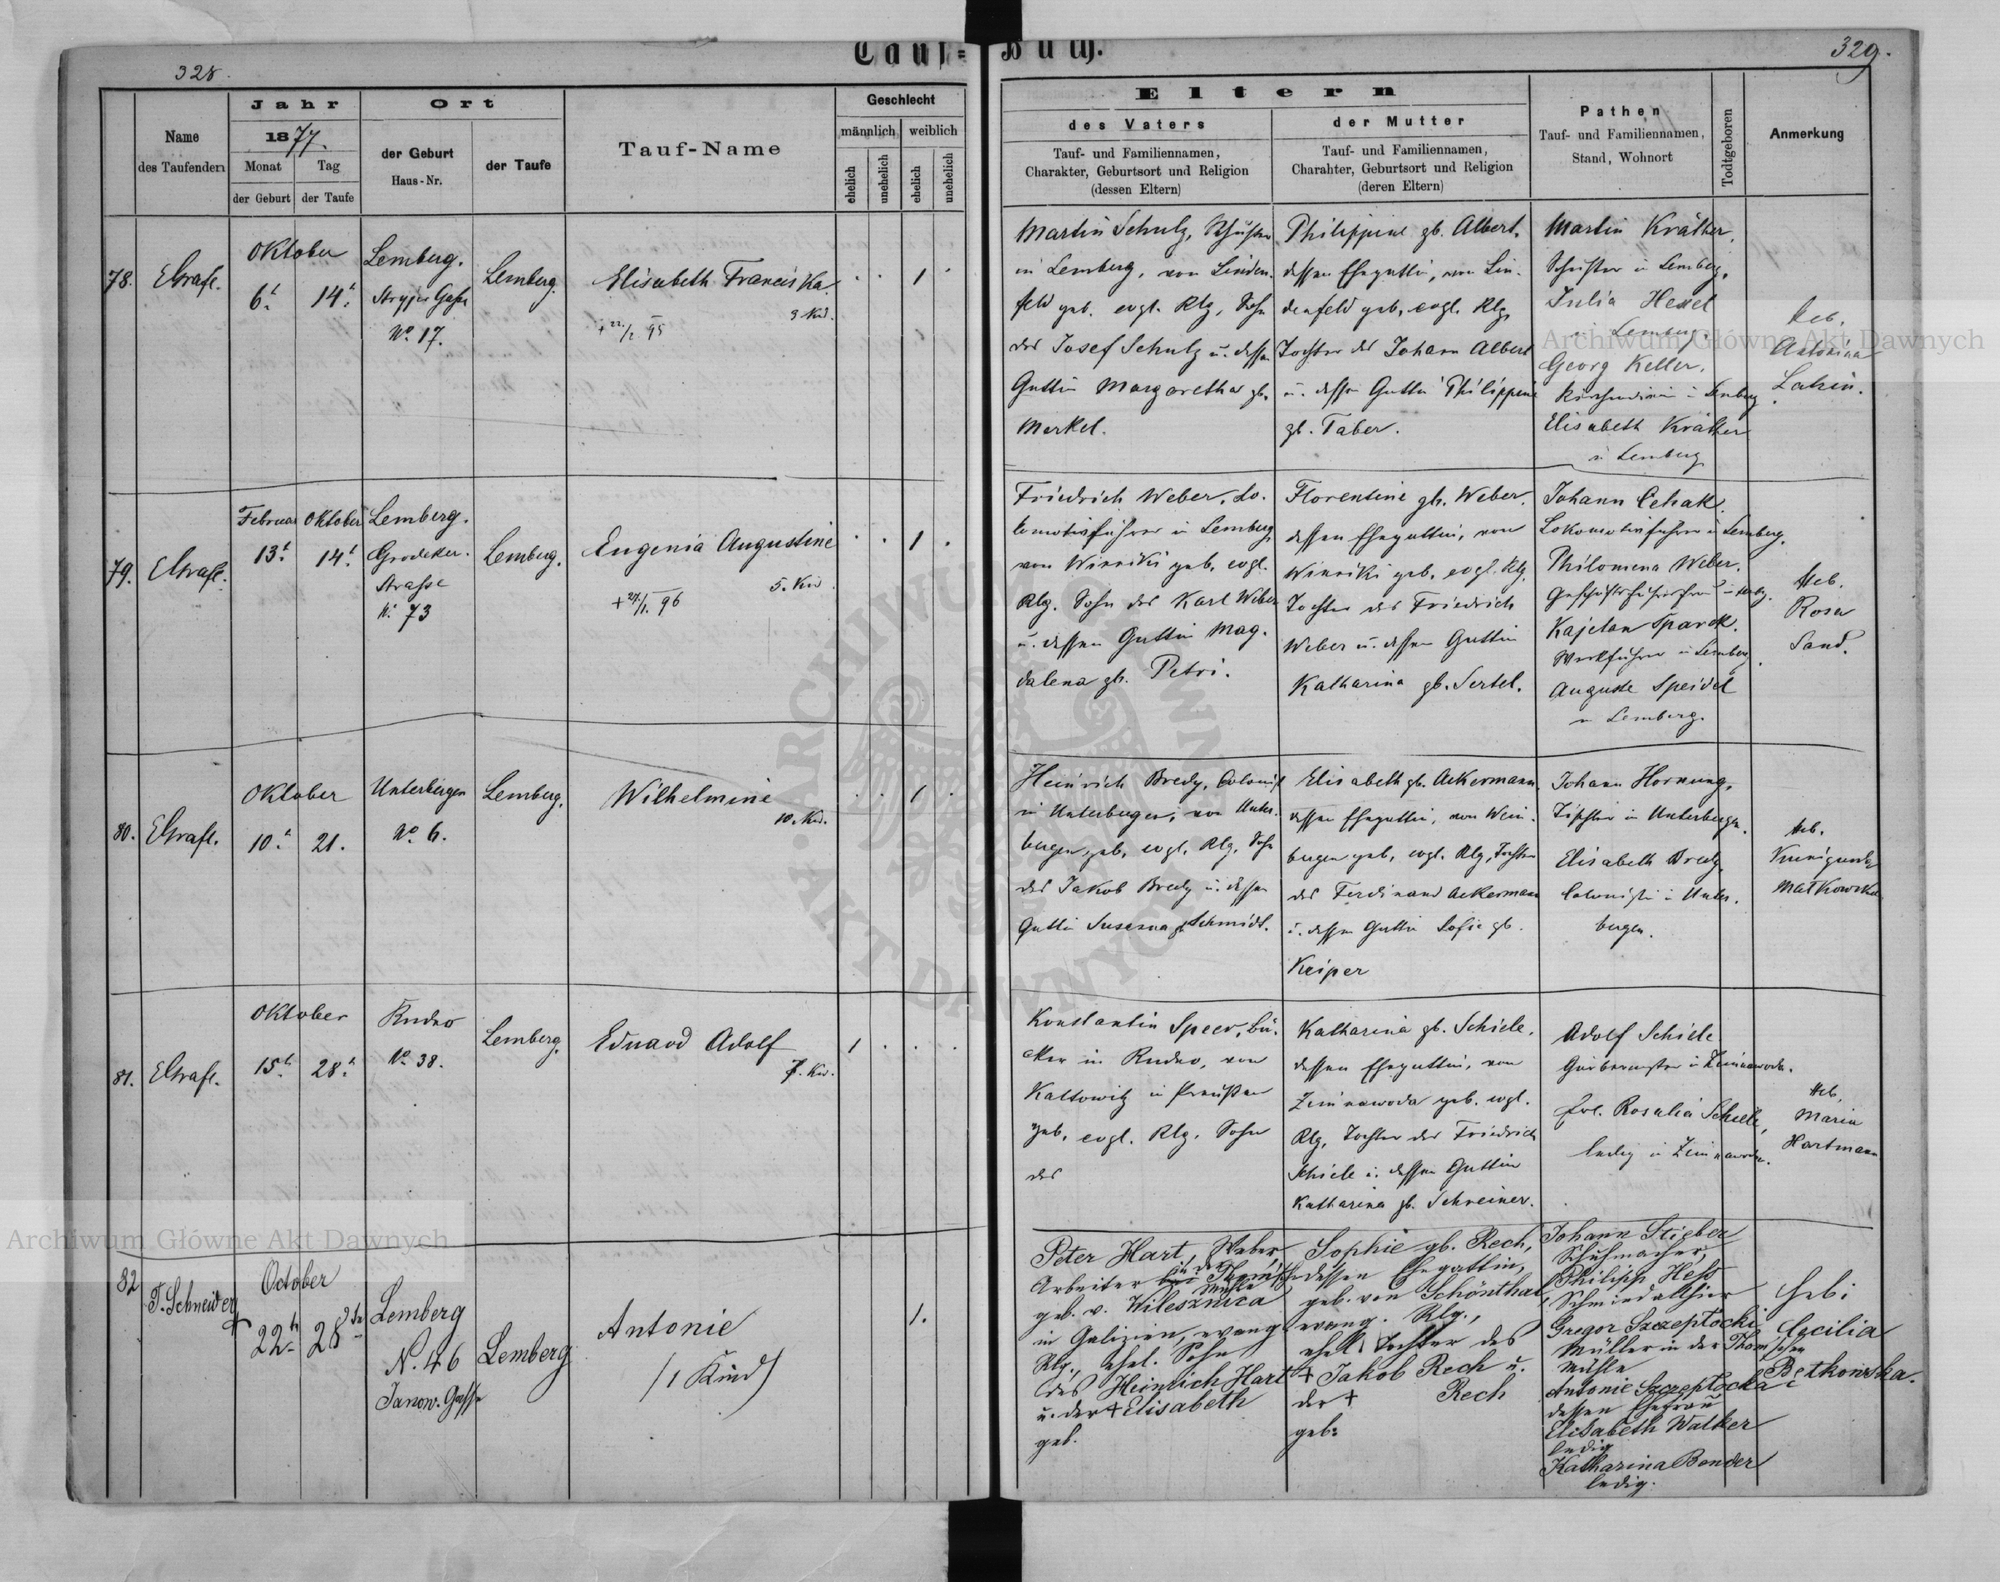 Tauf-Buch.
328.
329.
Name
des Taufenden
Jahr
1877.
Monat
Tag
der Geburt
der Taufe
Ort
der Geburt
Haus-Nr.
der Taufe
Tauf-Name
Geschlecht
männlich
weiblich
ehelich
unehelich
ehelich
unehelich
Eltern
des Vaters
Tauf- und Familiennamen,
Charakter, Geburtsort und Religion
(dessen Eltern)
der Mutter
Tauf- und Familiennamen,
Charahter, Geburtsort und Religion
(deren Eltern)
Pathen
Tauf- und Familiennamen,
Stand, Wohnort
Todtgeboren
Anmerkung
78.
Oktober
6t
14t
Lemberg.
No. 17.
Lemberg.
Elisabeth Franciska
3 Kd.
1
Martin Schulz,
in Lemberg, von Linden-
feld geb. evgl. Rlg, Sohn
des Josef Schulz u. dessen
Gattin Margaretha gb.
Merkel.
Philippine gb. Albert.
dessen Ehegattin, von Lin-
denfeld geb. evgl. Rlg,
Tochter des Johann Albert
u. dessen Gattin Philippine
gb. Taber.
Martin Kräther,
Schuster in Lemberg,
Julia Hexel
in Lemberg
Georg Keller.
in Lemberg
Elisabeth Kräther
in Lemberg
Heb.
Antonina
79.
Februar
Oktober
13t
14t
Lemberg.
Grodeker-
Strasse
N. 73
Lemberg.
Eugenia Augustine
5. Kd
1
Friedrich Weber, Lo-
komotivführer in Lemberg,
von Winniki geb. evgl.
Rlg. Sohn des Karl Weber
u. dessen Gattin Mag-
dalena gb. Petri.
Florentine gb. Weber.
dessen Ehegattin, von
Winniki geb. evgl. Rlg.
Tochter des Friedrich
Weber u. dessen Gattin
Katharina gb. Sertel.
Johann Cehak
Lokomotivführer in Lemberg.
Philomena Weber.
Kajetan Sparek.
Werkführer in Lemberg
Auguste Speidel
in Lemberg.
Heb.
Rosa
Sand.
80.
Oktober
10t
21.
Unterbergen
No. 6.
Lemberg.
Wilhelmine
10. Kd.
1
Heinrich Bredy, Colonist
in Unterbergen, von Unter-
bergen geb. evgl. Rlg. Sohn
des Jakob Bredy u. dessen
Gattin Susanna gb Schmidt.
Elisabeth gb. Ackermann
dessen Ehegattin, von Wein-
bergen geb. evgl. Rlg, Tochter
des Ferdinand Ackermann
u. dessen Gattin Sofie gb.
Keiper
Johann Hornung,
Tischler in Unterbergen.
Elisabeth Bredy
Colonistin in Unter-
bergen.
Heb.
Kunigunda
Matkowska
81.
Oktober
15t
28t
Rudno
No. 38.
Lemberg.
Eduard Adolf
7. Kd.
1
Konstantin Speer, Bä-
cker in Rudno, von
Kattowitz in Preußen
geb. evgl. Rlg. Sohn
des
Katharina gb. Schiele.
dessen Ehegattin, von
Zimnawoda geb. evgl.
Rlg, Tochter des Friedrich
Schiele u. dessen Gattin
Katharina gb. Schreiner.
Adolf Schiele
in Zimnawoda.
Rosalia Schiele,
ledig in Zimnawoda.
Heb.
Maria
Hartmann
82
T. Schneider
October
22t
28
Lemberg
N. 46
Janow. Gasse
Lemberg
Antonie
(1 Kind)
1.
Peter Hart,
Arbeiter in der Thom'schen
Mühle
geb. v.
in Galizien, evang.
Rlg., ehel. Sohn
des Heinrich Hart
u. der + Elisabeth
geb.
Sophie gb. Rech,
dessen Ehegattin,
geb. von Schönthal,
evang. Rlg.,
ehel. Tochter des
+ Jakob Rech u.
der + Rech
geb:
Johann Stieber
Schuhmacher,
Philipp Heß
Schmied allhier
Gregor Szczeptocki
Müller in der Thom'schen
Mühle
Antonie Szczeptocka
dessen Ehefrau
Elisabeth Walker
ledig
Katharina Bender
ledig.
Heb:
Cecilia
Betkowska.
Archiwum Główne Akt Dawnych
Archiwum Główne Akt Dawnych
ARCHIWUM GŁÓWNE AKT DAWNYCH